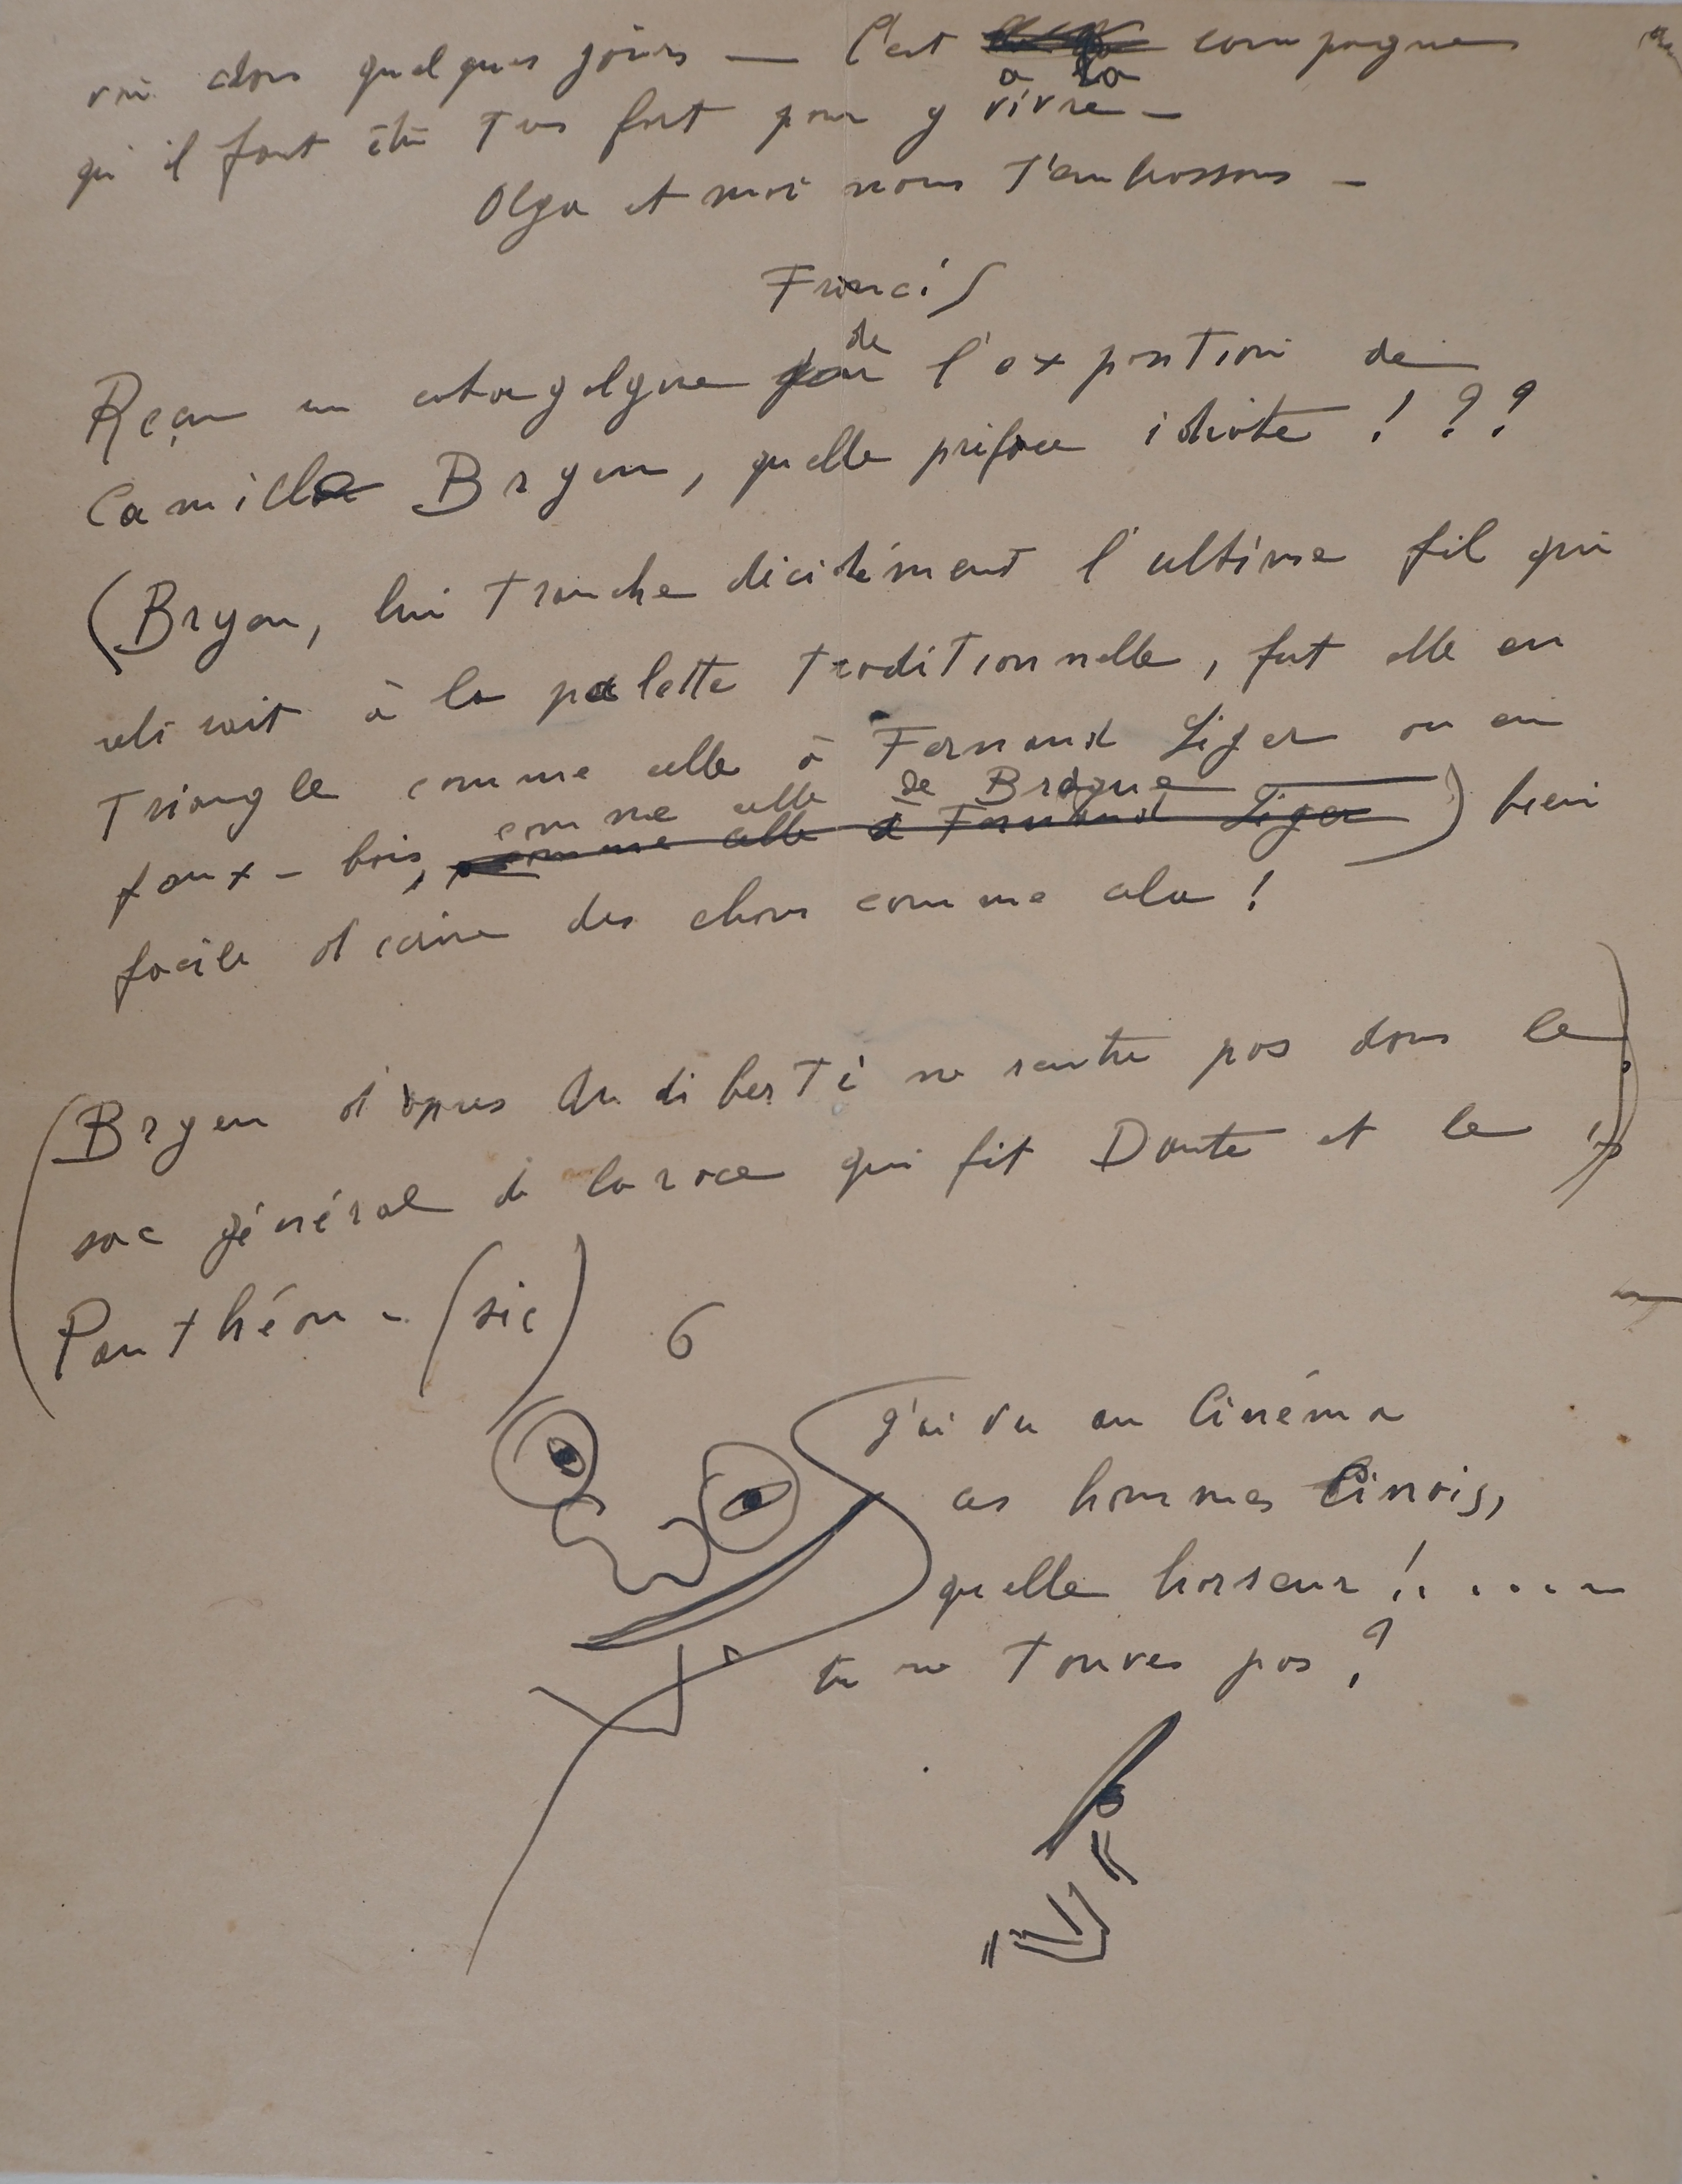 voir dans quelques jours — C'est campagne
a la
qu'il faut être Très fort pour y vivre —
Olga et moi nous T'embrassons —
Francis
de
Reçu un catagolgue l'exposition de
Camille Bryen, quelle préface idiote ! ? ?
(Bryen, lui Tranche décidément l'ultime fil qui
relirait à la palette Traditionnelle, fut elle en
Triangle comme celle à Fernand Léger ou en
comme celle de Braque
faux-bois, comme celle à Fernand Léger ) bien
facile d'écrire des choses comme cela !
(Bryen d'après Audiberti ne rentre pas dans le
sac général de la race qui fit Dante et le
Panthéon - (sic)
J'ai vu au Cinéma
ces hommes Cinois,
quelle horreur ! . . . . .
tu ne Touves pas ?